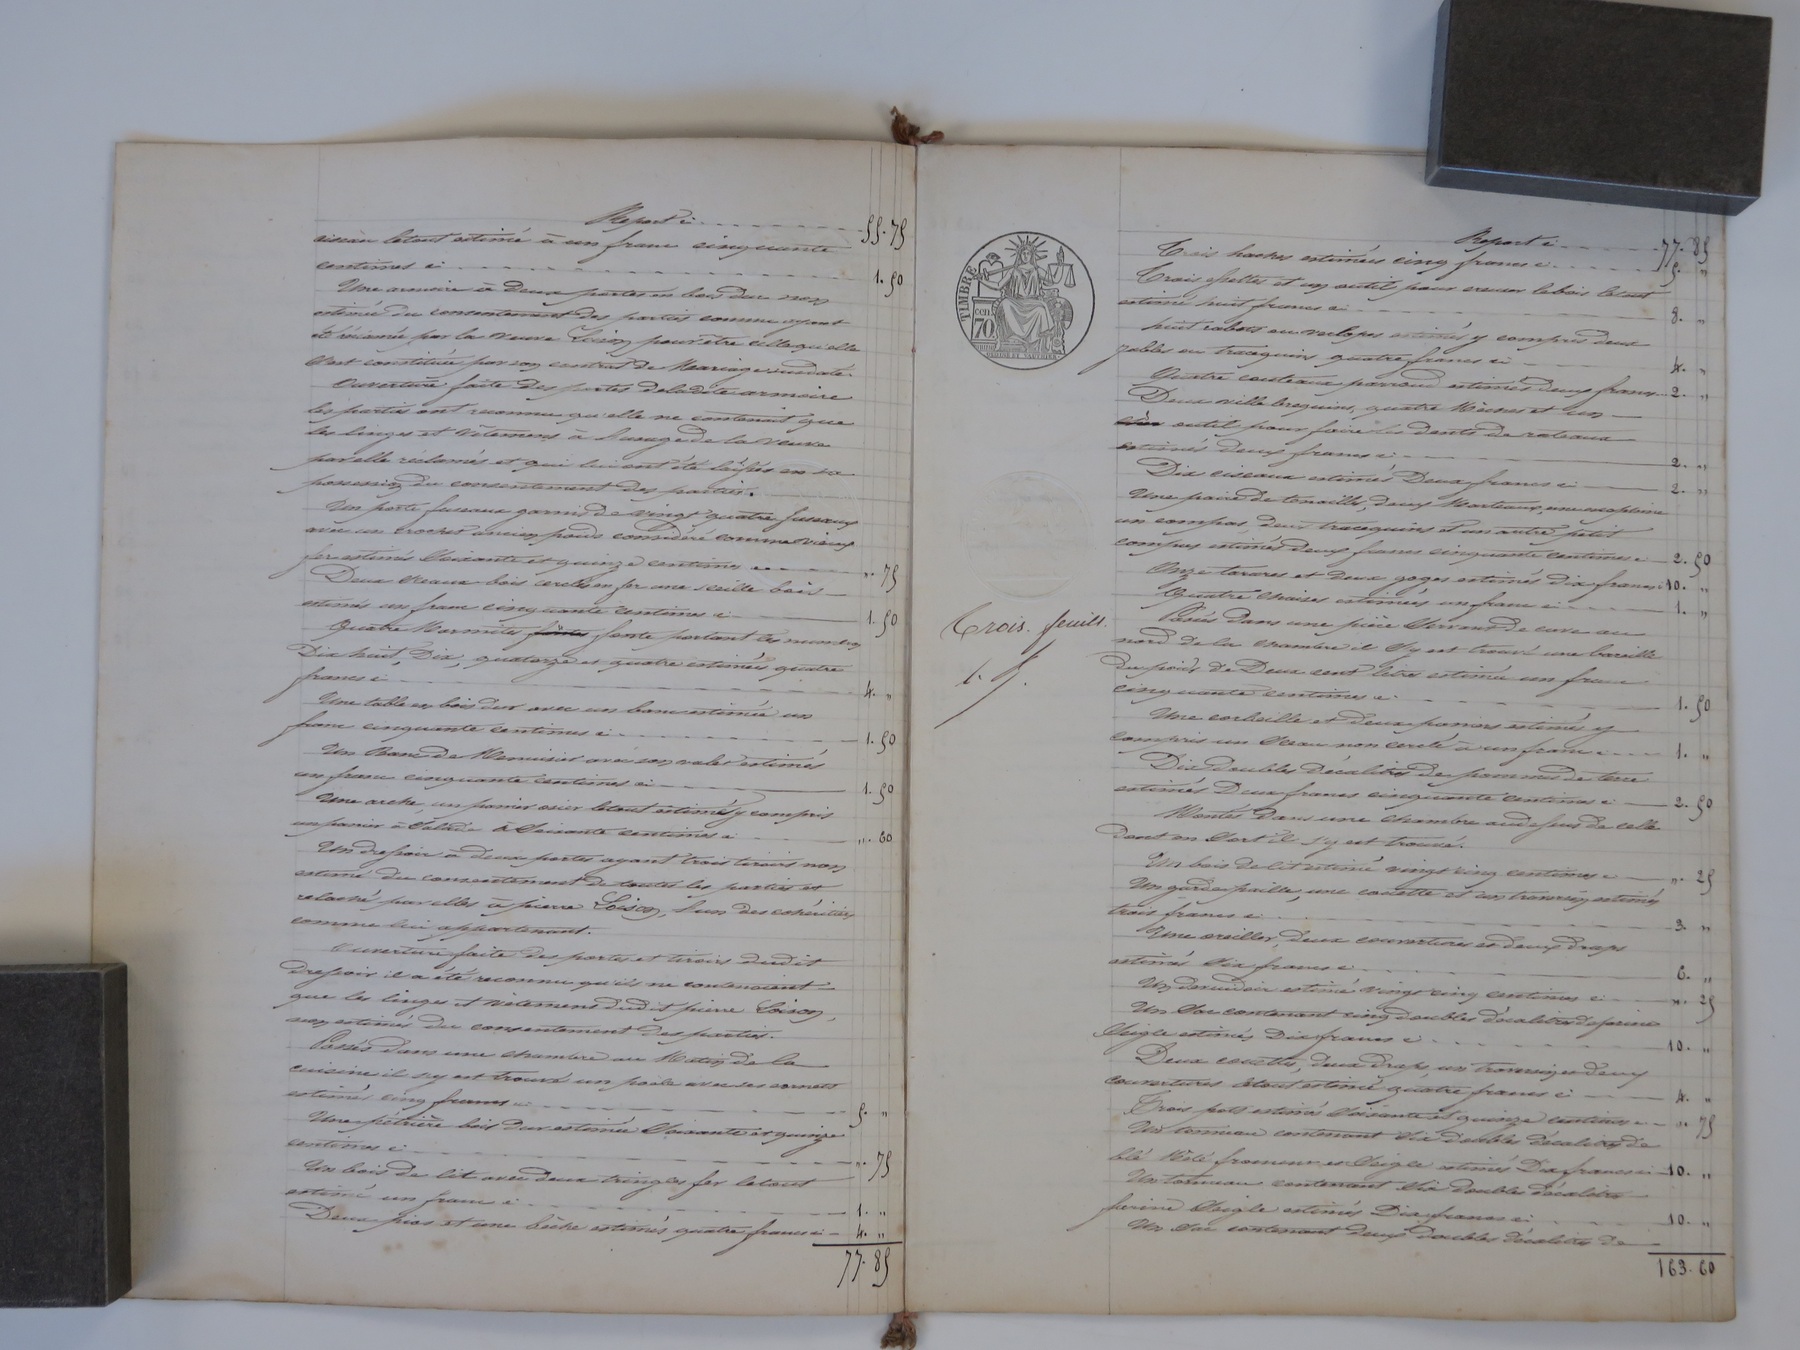 Report ci 55.75
ciseau le tout estimé à un franc cinquante
centimes ci 1.50
Une armoire à deux portes en bois dur non
estimée du consentement des parties comme ayant
été réclamée par la veuve Loison pour être celle qu'elle
s'est constituée par son contrat de Mariage susdaté.
Ouverture faite des portes de ladite armoire
les parties ont reconnu qu'elle ne contenait que
les linges et vêtemens à l'usage de la veuve
par elle réclamés et qui lui ont été laissés en sa
possession du consentement des parties.
Un porte fuseaux garni de vingt quatre fuseaux
avec un crochet ancien poids considéré comme vieux
fer estimés Soixante et quinze centimes ". 75
Deux Sceaux bois cerclés en fer une seille bois
estimés un franc cinquante centimes ci 1.50
Quatre Marmites fonte portant les numéros
Dix huit, Dix, quatorze et quatre estimés quatre
francs ci 4. "
Une table en bois dur avec un banc estimée un
franc cinquante centimes ci 1.50
Un Banc de Menuisier avec son valet estimés
un franc cinquante centimes ci 1.50
Une arche, un panier osier le tout estimé y compris
un panier à Salade à Soixante centimes ci ". 60
Un dressoir à deux portes ayant trois tiroirs non
estimé du consentement de toutes les parties et
relaché par elles à pierre Loison, l'un des cohéritiers
comme lui appartenant.
Ouverture faite des portes et tiroirs dudit
dressoir il a été reconnu qu'ils ne contenaient
que les linges et vêtemens dudit pierre Loison,
non estimés du consentement des parties.
Passés dans une chambre au Matin de la
cuisine il s'y est trouvé un poële avec ses cornets
estimés cinq francs ci 5. "
Une pétrière bois dur estimée Soixante et quinze
centimes ci ". 75
Un bois de lit avec deux tringles fer le tout
estimé un franc ci 1. "
Deux pics et une bêche estimés quatre francs ci 4. "
77.85
TIMBRE
70 cen
Trois feuills.
Report ci 77.85
Trois haches estimées cinq francs ci 5. "
Trois et un outil pour creuser le bois le tout
estimé huit francs ci 8. "
huit rabots ou varlopes estimés y compris deux
jables ou tracequins quatre francs ci 4. "
Quatre couteaux estimés deux francs 2. "
Deux ville brequins, quatre Mèches et un
outil pour faire les dents de rateaux
estimés deux francs ci 2. "
Dix ciseaux estimés Deux francs ci 2. "
Une paire de tenailles, deux Marteaux, une
un compas, deux tracequins et un autre petit
compas estimés deux francs cinquante centimes ci 2.50
Onze tarares et deux goges estimés dix francs ci 10. "
Quatre chaises estimées un franc ci 1. "
Passés dans une pièce Servant de cave au
nord de la chambre il s'y est trouvé une bareille
du poids de Deux cent litres estimée un franc
cinquante centimes ci 1.50
Une corbeille et deux paniers estimés y
compris un Sceau non cerclé à un franc ci 1. "
Dix doubles Décalitres de pommes de terre
estimés Deux francs cinquante centimes ci 2.50
Montés dans une chambre au dessus de celle
dont on Sort il s'y est trouvé.
Un bois de lit estimé vingt cinq centimes ci ". 25
Un garde paille, une couette et un traversin estimés
trois francs ci 3. "
Une oreiller, deux couvertures et deux draps
estimés Six francs ci 6. "
Un devidoir estimé vingt cinq centimes ci ". 25
Un Sac contenant cinq doubles décalitres de farine
Seigle estimés Dix francs ci 10. "
Deux couettes, deux draps un traversin et deux
couvertures le tout estimé quatre francs ci 4. "
Trois pots estimés Soixante et quinze centimes ci ". 75
Un tonneau contenant Six doubles décalitres de
blé Mêlé froment et Seigle estimés Dix francs ci 10. "
Un tonneau contenant Six doubles décalitres
farine Seigle estimés Dix francs ci 10. "
Un Sac contenant deux doubles décalitres de
163.60